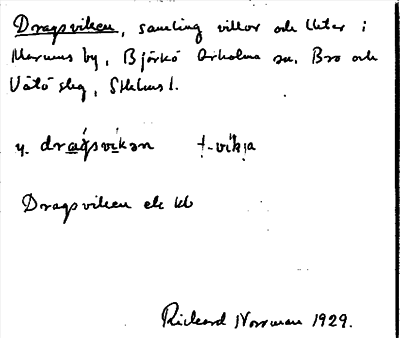 Dragsviken, samling villor och
Marums by, Björkö Arholma sn, Bro och
Vätö slg, Sthlms l.
y. dragsvikan †-vikja
Dragsviken ek kb
Rickard Norrman 1929.